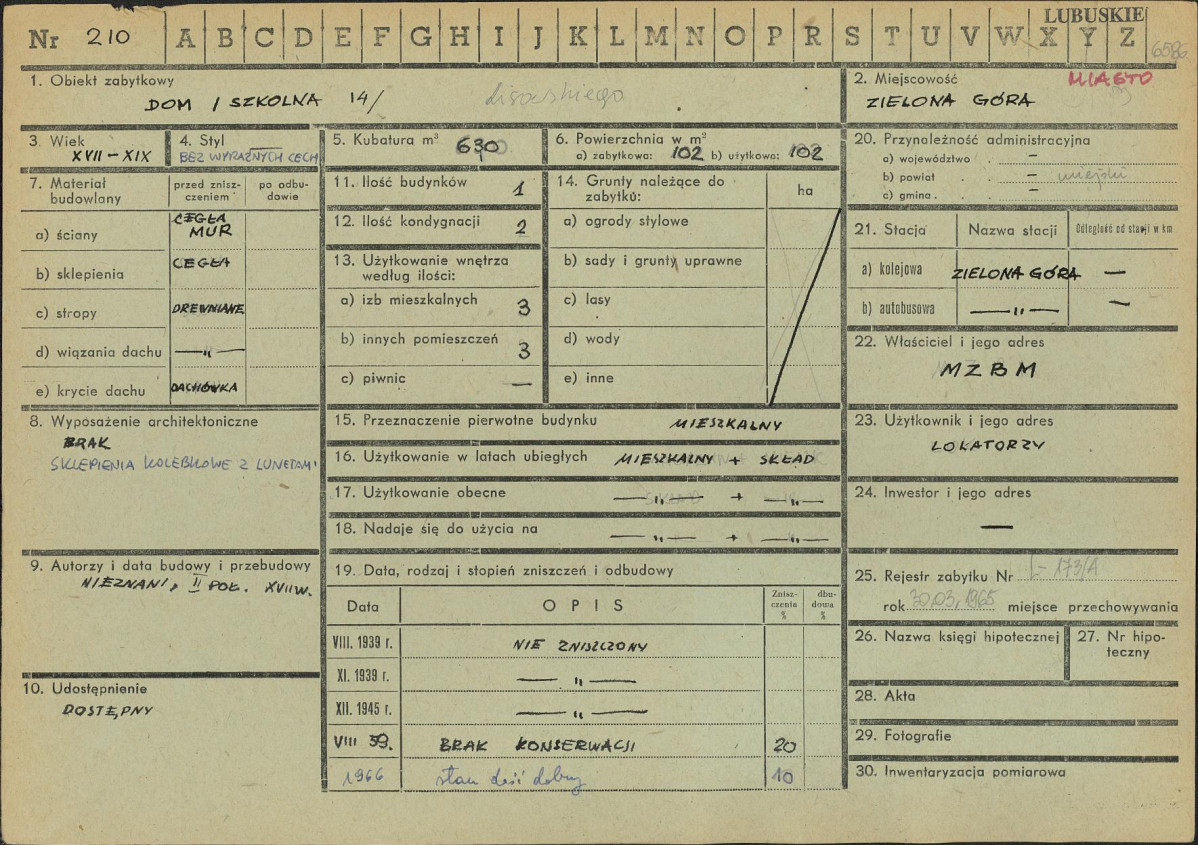 Nr 210 A B C D E F G H I J K L M N O P R S T U V W X Y Z
LUBUSKIE
6586
1. Obiekt zabytkowy
DOM / SZKOLNA 14/
2. Miejscowość MIASTO
ZIELONA GÓRA
3. Wiek
XVII – XIX
4. Styl
BEZ WYRAŹNYCH CECH
5. Kubatura m³ 630
6. Powierzchnia w m²
a) zabytkowa: 102 b) użytkowa: 102
20. Przynależność administracyjna
a) województwo . –
b) powiat . . – miejski
c) gmina . . –
7. Materiał budowlany
przed zniszczeniem
po odbudowie
a) ściany CEGŁA MUR
b) sklepienia CEGŁA
c) stropy DREWNIANE
d) wiązania dachu —"—
e) krycie dachu DACHÓWKA
11. Ilość budynków 1
12. Ilość kondygnacji 2
13. Użytkowanie wnętrza
według ilości:
a) izb mieszkalnych 3
b) innych pomieszczeń 3
c) piwnic —
14. Grunty należące do
zabytku: ha
a) ogrody stylowe
b) sady i grunty uprawne
c) lasy
d) wody
e) inne
21. Stacja Nazwa stacji Odległość od stacji w km
a) kolejowa ZIELONA GÓRA —
b) autobusowa —"— —
22. Właściciel i jego adres
MZBM
8. Wyposażenie architektoniczne
BRAK
SKLEPIENIA KOLEBKOWE Z LUNETAMI
15. Przeznaczenie pierwotne budynku MIESZKALNY
16. Użytkowanie w latach ubiegłych MIESZKALNY + SKŁAD
17. Użytkowanie obecne —"— + —"—
18. Nadaje się do użycia na —"— + —"—
23. Użytkownik i jego adres
LOKATORZY
24. Inwestor i jego adres
—
9. Autorzy i data budowy i przebudowy
NIEZNANI, II POŁ. XVII W.
10. Udostępnienie
DOSTĘPNY
19. Data, rodzaj i stopień zniszczeń i odbudowy
Data OPIS Zniszczenia % dbudowa %
VIII. 1939 r. NIE ZNISZCZONY
XI. 1939 r. —"—
XII. 1945 r. —"—
VIII 59. BRAK KONSERWACJI 20
1966 stan dość dobry 10
25. Rejestr zabytku Nr L-173/A
rok 30.03.1965 miejsce przechowywania
26. Nazwa księgi hipotecznej
27. Nr hipoteczny
28. Akta
29. Fotografie
30. Inwentaryzacja pomiarowa